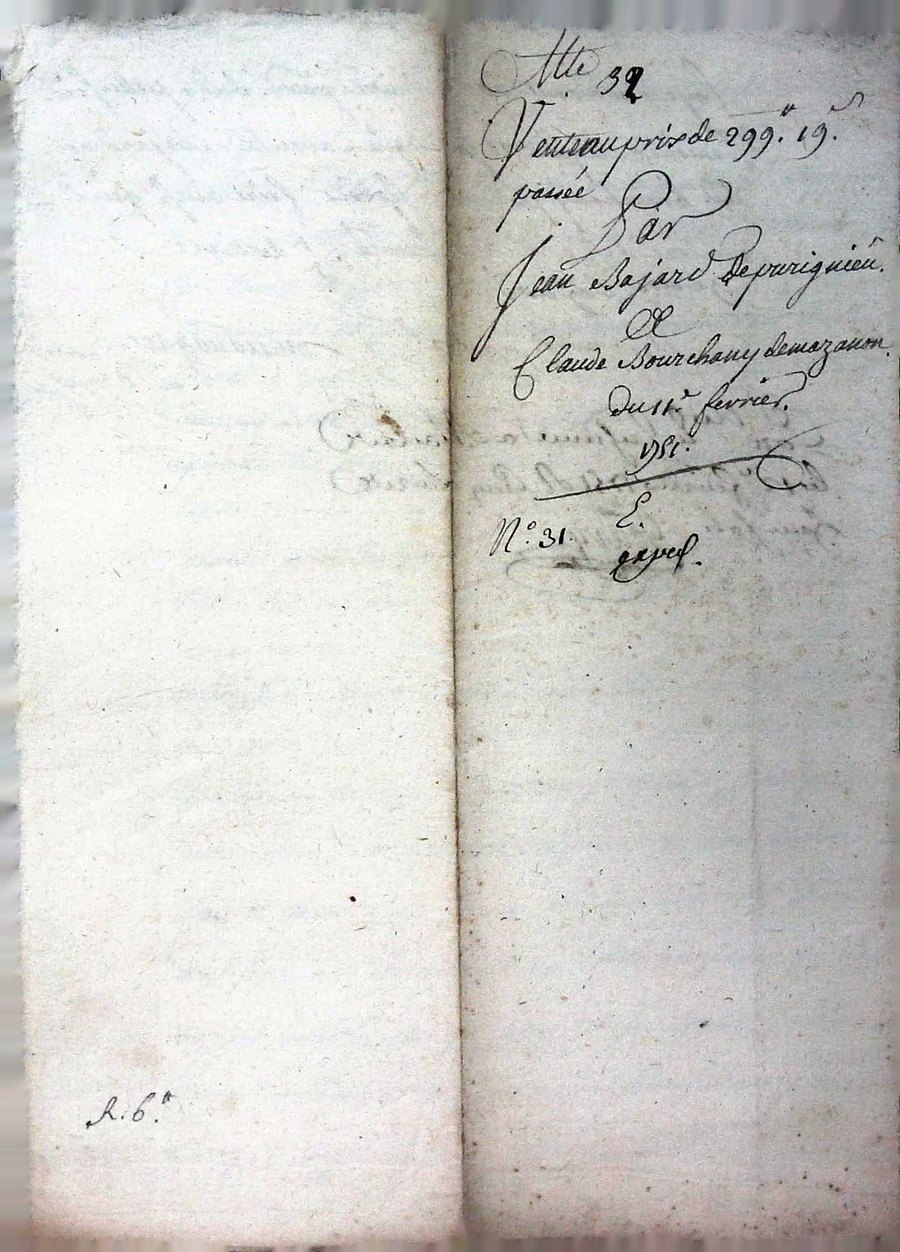 Cotte 32
Vente au prix de 299.ll 19.s
passée
Par
Jean Bajard De purignieu.
A
Claude Bourchany de mazanon.
Du 11.e fevrier.
1751.
E.
N.o 31.
exped.
R. 6.ll